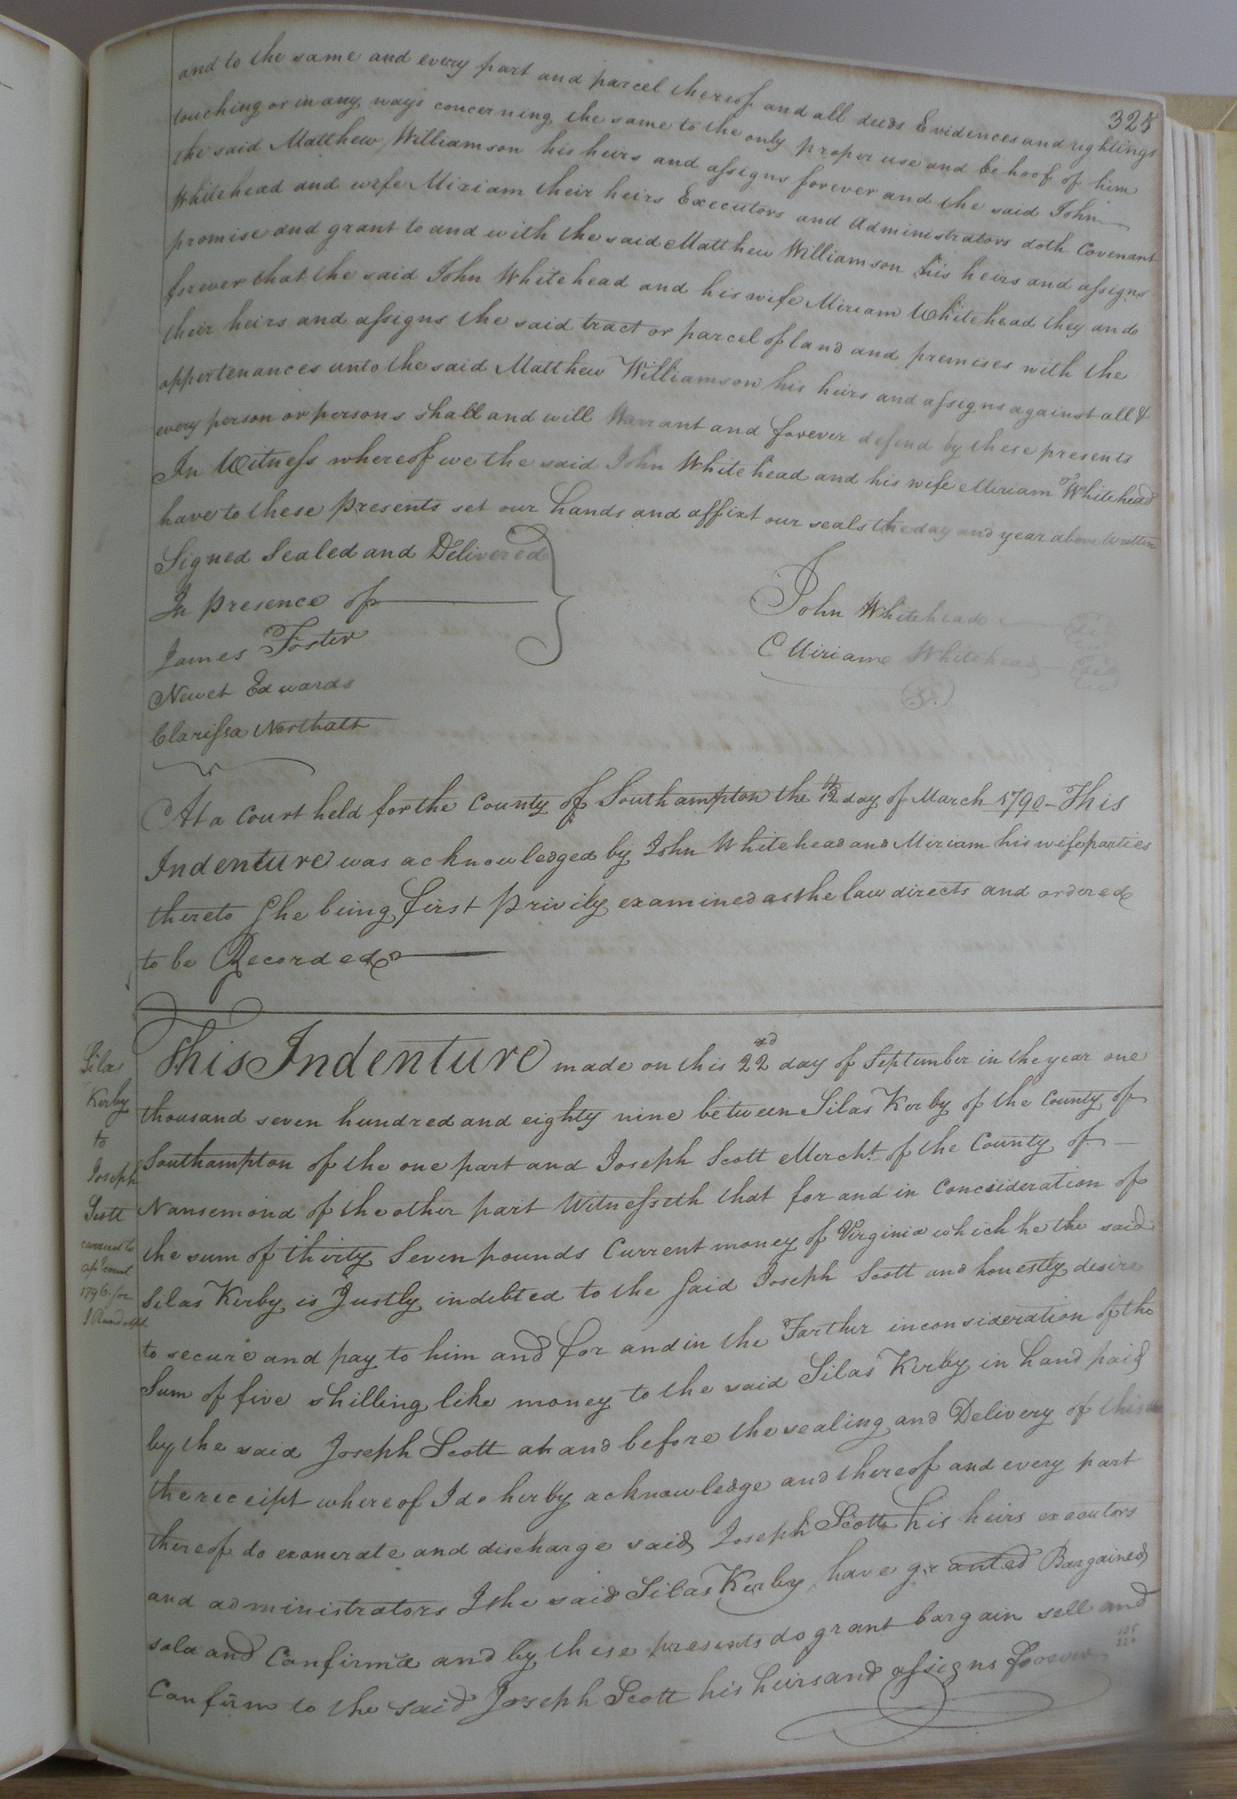 325
and to the same and every part and parcel thereof and all deeds Evidences and rightings
touching or in any ways concerning the same to the only proper use and behoof of him
the said Matthew Williamson his heirs and assigns forever and the said John
Whitehead and wife Miriam their heirs Executors and Administrators doth Covenant
promise and grant to and with the said Matthew Williamson his heirs and assigns
forever that the said John Whitehead and his wife Miriam Whitehead they and
their heirs and assigns the said tract or parcel of land and premises with the
appertenances unto the said Matthew Williamson his heirs and assigns against all &
every person or persons shall and will Warrant and forever defend by these presents
In Witness whereof we the said John Whitehead and his wife Miriam Whitehead
have to these presents set our hands and affixt our seals the day and year above Written
Signed Sealed and Delivered
In presence of
James Foster
Newet Edwards
Clarissa
John Whitehead
Miriam Whitehead
At a Court held for the County of Southampton the 12th day of March 1790 - This
Indenture was acknowledged by John Whitehead and Miriam his wife parties
thereto She being first privily examined as the law directs and ordered
to be Recorded
This Indenture made on this 22nd day of September in the year one
thousand seven hundred and eighty nine between Silas Kerby of the County of
Southampton of the one part and Joseph Scott Mercht. of the County of
Nansemond of the other part Witnesseth that for and in Concideration of
the sum of thirty Seven pounds Current money of Virginia which he the said
Silas Kerby is Justly indebted to the said Joseph Scott and honestly desire
to secure and pay to him and for and in the Farther inconsideration of the
Sum of five shilling like money to the said Silas Kerby in hand paid
by the said Joseph Scott at and before the sealing and Delivery of this
the receipt whereof I do herby acknowledge and thereof and every part
thereof do exonerate and discharge said Joseph Scott his heirs executors
and administrators I the said Silas Kerby have granted Bargained
sold and Confirmd and by these presents do grant bargain sell and
Confirm to the said Joseph Scott his heirs and assigns forever
Silas
Kerby
to
Joseph
Scott
1796